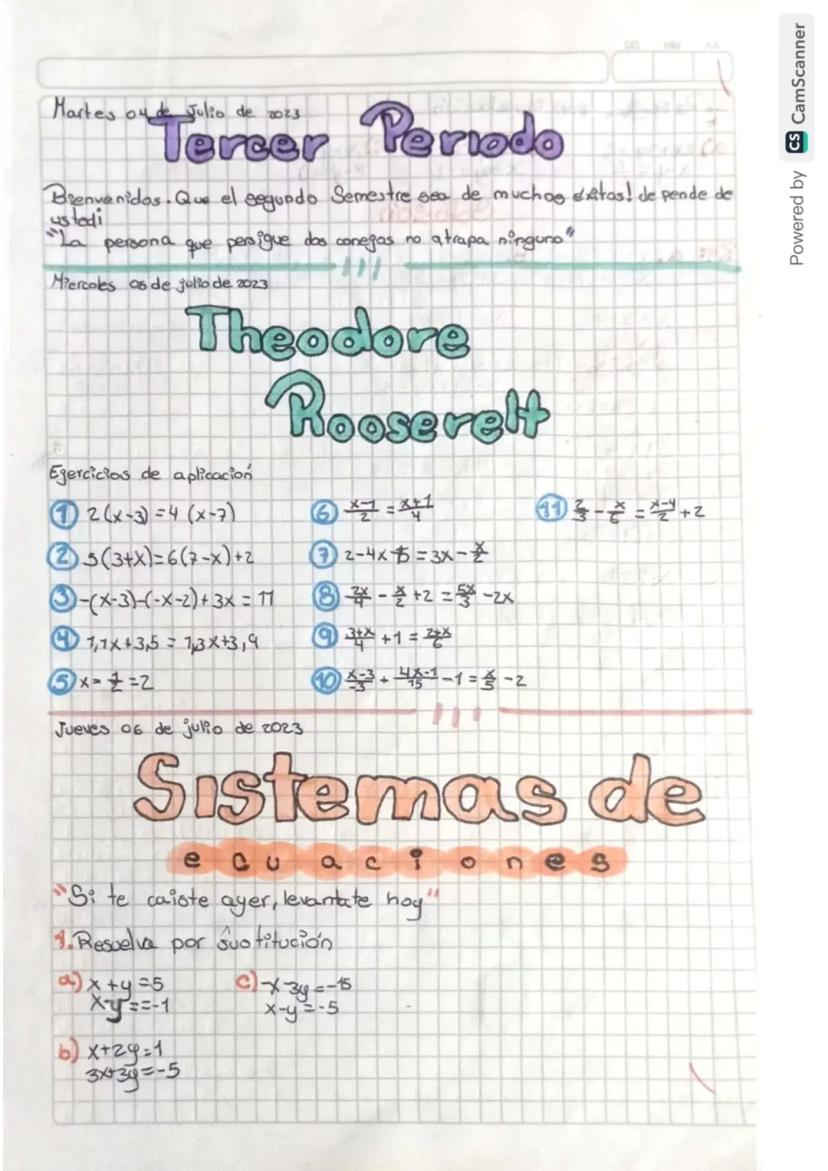 Martes 04 de Julio de 2023
Tercer Periodo
Bienvenidos. Que el segundo Semestre sea de muchos éxitos! de pende de
ustedi
"La persona que persigue dos conejos no atrapa ninguno"
Miercoles 05 de julio de 2023
Theodore
Rooserelt
Ejercicios de aplicación
1 2(x-3)=4 (x-7)
6 x-1/2 = x+1/4
11 2/3 - x/6 = x-4/2 + 2
2 5(3+x)=6(7-x)+2
7 2-4x+5=3x-x/2
3 -(x-3)-(-x-2)+3x = 11
8 3x/4 - x/2 + 2 = 5x/3 - 2x
4 1,1x+3,5 = 1,3x+3,9
9 3+x/4 + 1 = 2+x/6
5 x- 1/2 = 2
10 x-3/-3 + 4x-1/15 - 1 = x/5 - 2
Jueves 06 de julio de 2023
Sistemas de
ecuaciones
"Si te caiste ayer, levantate hoy"
1. Resuelva por sustitución
a) x+y=5
x-y==-1
c) -x-3y=-15
x-y=-5
b) x+2y=1
3x+3y=-5
Powered by CS CamScanner